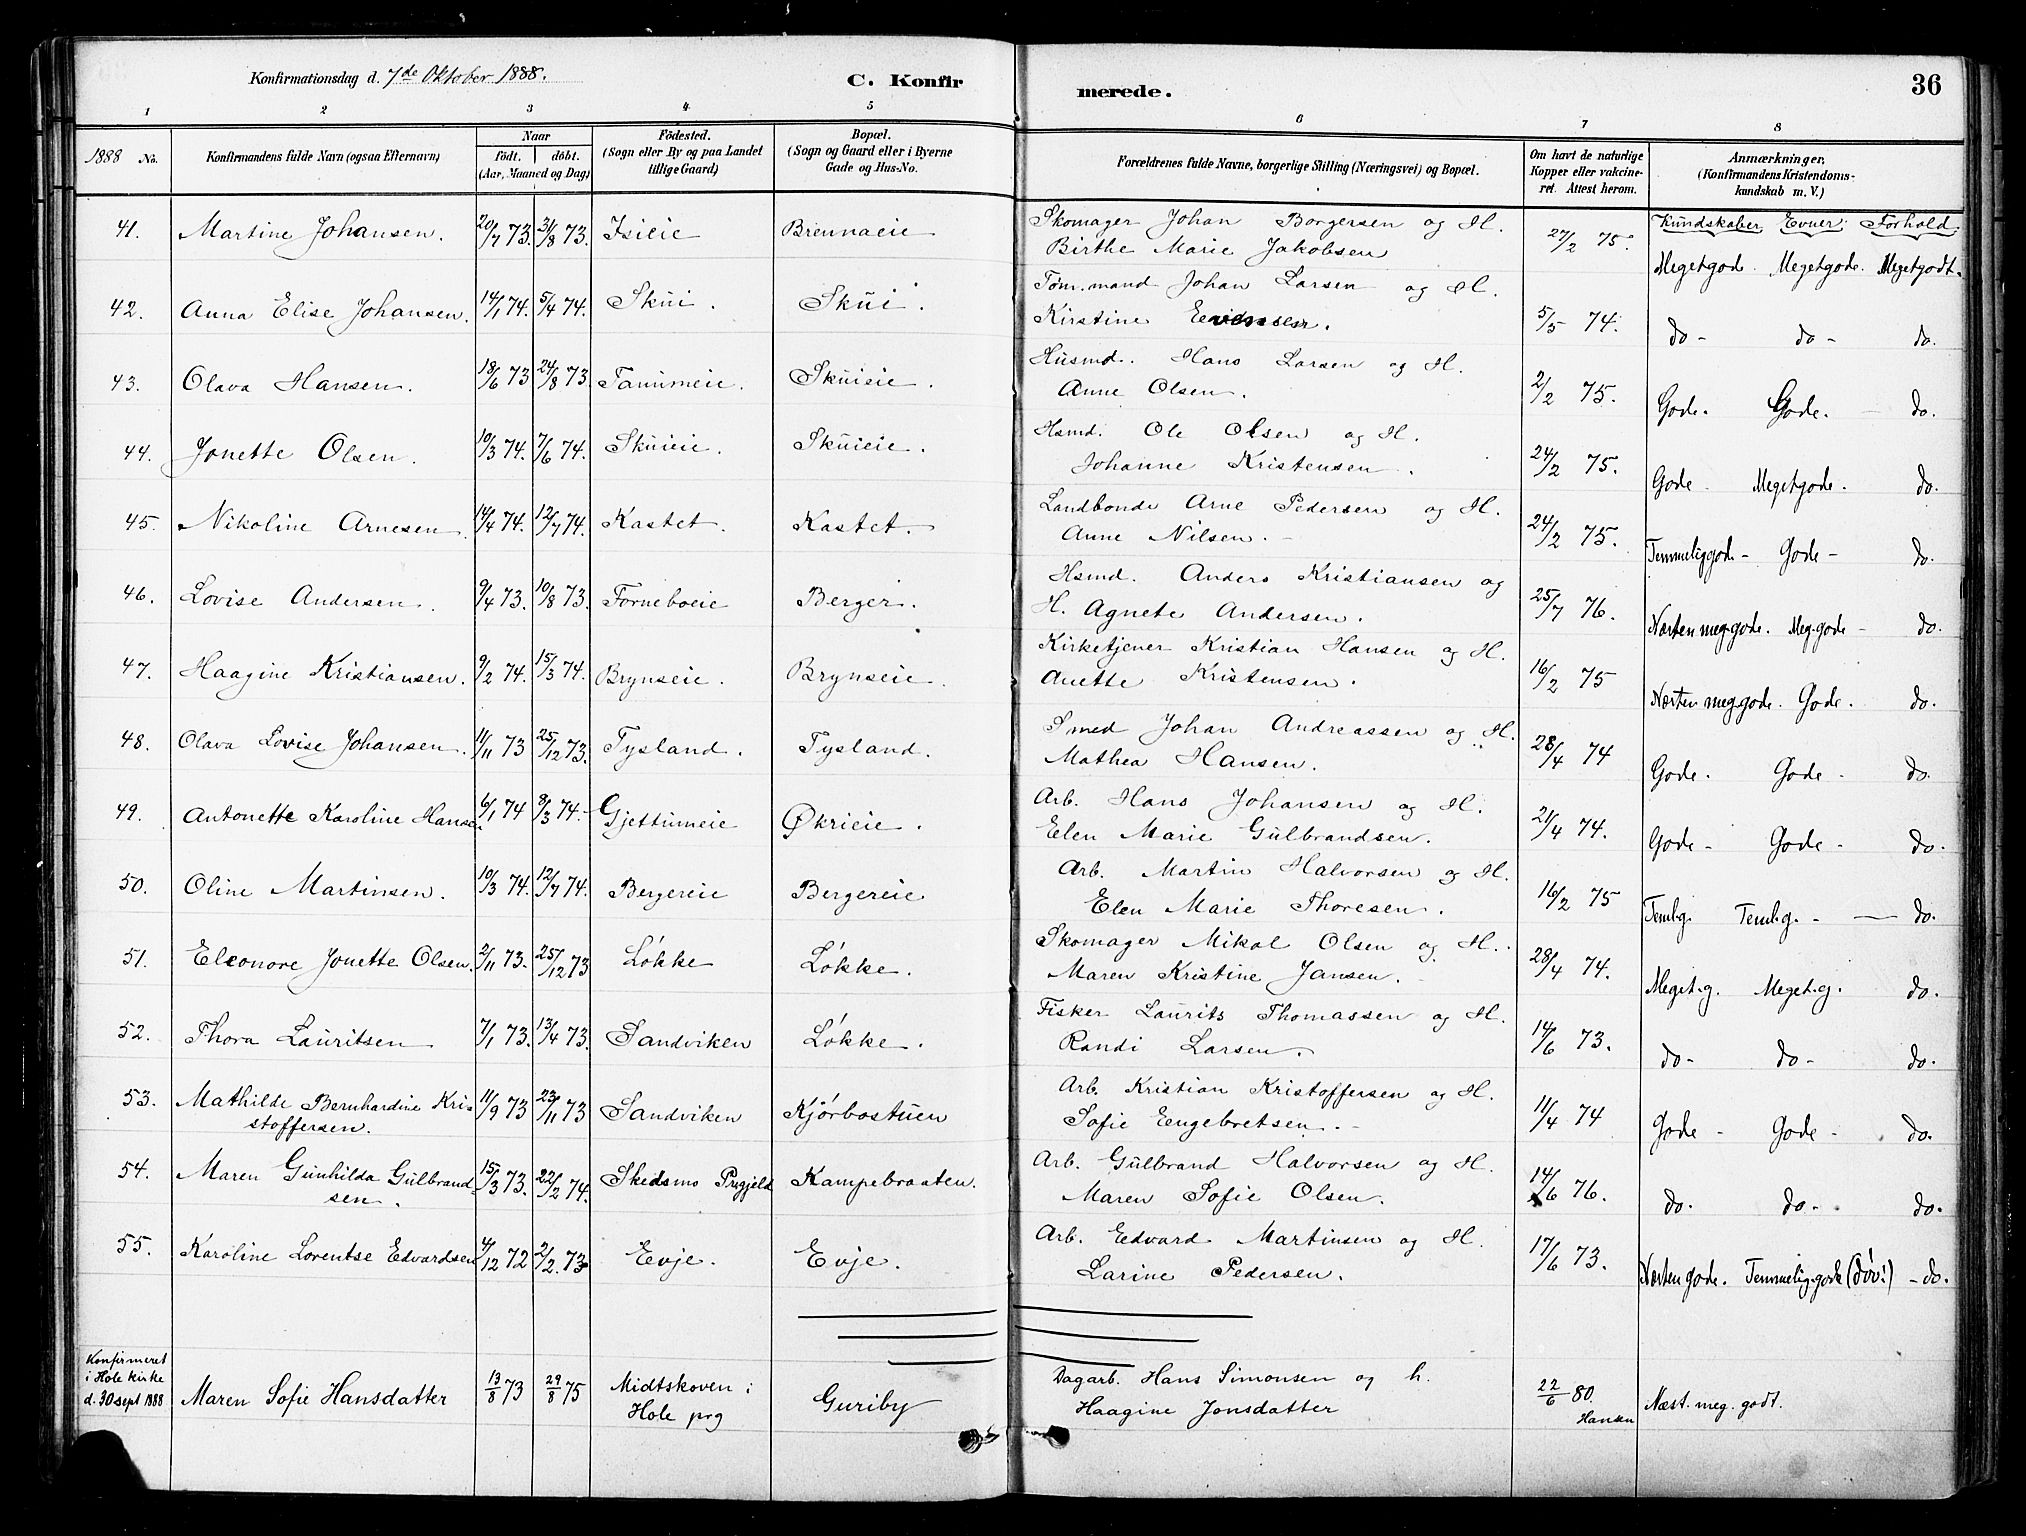 Konfirmationsdag d. 7de Oktober 1888.
C. Konfirmerede.
36
1 2 3 4 5 6 7 8
1888 No.
Konfirmandens fulde Navn (ogsaa Efternavn)
Naar
født. døbt.
(Aar, Maaned og Dag)
Fødested.
(Sogn eller By og paa Landet
tillige Gaard)
Bopæl.
(Sogn og Gaard eller i Byerne
Gade og Hus-No.
Forældrenes fulde Navne, borgerlige Stilling (Næringsvei) og Bopæl.
Om havt de naturlige
Kopper eller vakcine-
ret. Attest herom.
Anmærkninger,
(Konfirmandens Kristendoms-
kundskab m. V.)
Kundskaber Evner: Forhold
41. Martine Johansen. 20/7 73. 31/8 73. Isieie Brennaeie Skomager Johan Borgersen og H. 27/2 75.
Birthe Marie Jakobsen Megetgode. Megetgode. Megetgodt.
42. Anna Elise Johansen. 14/1 74. 5/4 74. Skui. Skui. Tøm.mand Johan Larsen og H.
Kirstine 5/5 74. do- do- do.
43. Olava Hansen. 18/6 73 24/8 73. Tanumeie. Skuieie. Husmd. Hans Larsen og H.
Anne Olsen. 2/2 75. Gode. Gode. - do.
44. Jonette Olsen. 10/3 74. 7/6 74. Skuieie. Skuieie. Hsmd. Ole Olsen og H.
Johanne Kristensen. 24/2 75. Gode- Megetgode. do.
45. Nikoline Arnesen. 14/4 74. 12/7 74. Kastet. Kastet. Landbonde Arne Pedersen og H.
Anne Nilsen.- 24/2 75. Temmeliggode- Gode- do.
46. Lovise Andersen. 9/4 73. 10/8 73. Forneboeie Berger. Hsmd. Anders Kristiansen og
H. Agnete Andersen. 25/7 76. Næsten meg.gode. Meg.gode- do.
47. Haagine Kristiansen. 9/2 74. 15/3 74. Brynseie. Brynseie. Kirketjener Kristian Hansen og H.
Anette Kristensen. 16/2 75 Næsten meg.gode. Gode. do.
48. Olava Lovise Johansen. 11/11 73 25/12 73. Tysland. Tysland. Smed Johan Andreassen og H.
Mathea Hansen. 28/4 74 Gode. Gode- do.
49. Antonette Karoline Hansen 6/1 74 8/3 74.- Gjettumeie Økrieie. Arb. Hans Johansen og H.
Elen Marie Gulbrandsen. 21/4 74. Gode- Gode- do.
50. Oline Martinsen. 10/3 74. 12/7 74. Bergereie Bergereie Arb. Martin Halvorsen og H.
Elen Marie Thoresen. 16/2 75 Teml.g. Teml.g.- - do.
51. Eleonore Jonette Olsen. 2/11 73. 25/12 73 Løkke Løkke. Skomager Mikal Olsen og H.
Maren Kristine Jansen. 28/4 74. Meget.g. Meget.g. do.
52. Thora Lauritsen 7/1 73. 13/4 73. Sandviken Løkke. Fisker Laurits Thomassen og H.
Randi Larsen. 14/6 73. do- do- do.
53. Mathilde Bernhardine Kris- 11/9 73 23/11 73 Sandviken Kjørbostuen Arb. Kristian Kristoffersen og H.
stoffersen. Sofie Eengebretsen.- 11/4 74 Gode- Gode- do.
54. Maren Gunhilda Gulbrand- 15/3 73. 22/2 74. Skedsmo Prgjeld Kampebraaten. Arb. Gulbrand Halvorsen og H.
sen. Maren Sofie Olsen. 14/6 76. do. do-. do.
55. Karoline Lorentse Edvardsen 4/12 72 2/2 73 Eevje. Evje. Arb. Edvard Martinsen og H.
Larine Pedersen. 17/6 73. Næsten gode. Temmelig.gode (døv!) - do.
Konfirmeret
i Hole kirke
d. 30 sept 1888 Maren Sofie Hansdatter 13/8 73 29/8 75 Midtskoven i Guriby Dagarb. Hans Simonsen og h.
Hole prg Haagine Jonsdatter 22/6 80. Næst. meg. godt.